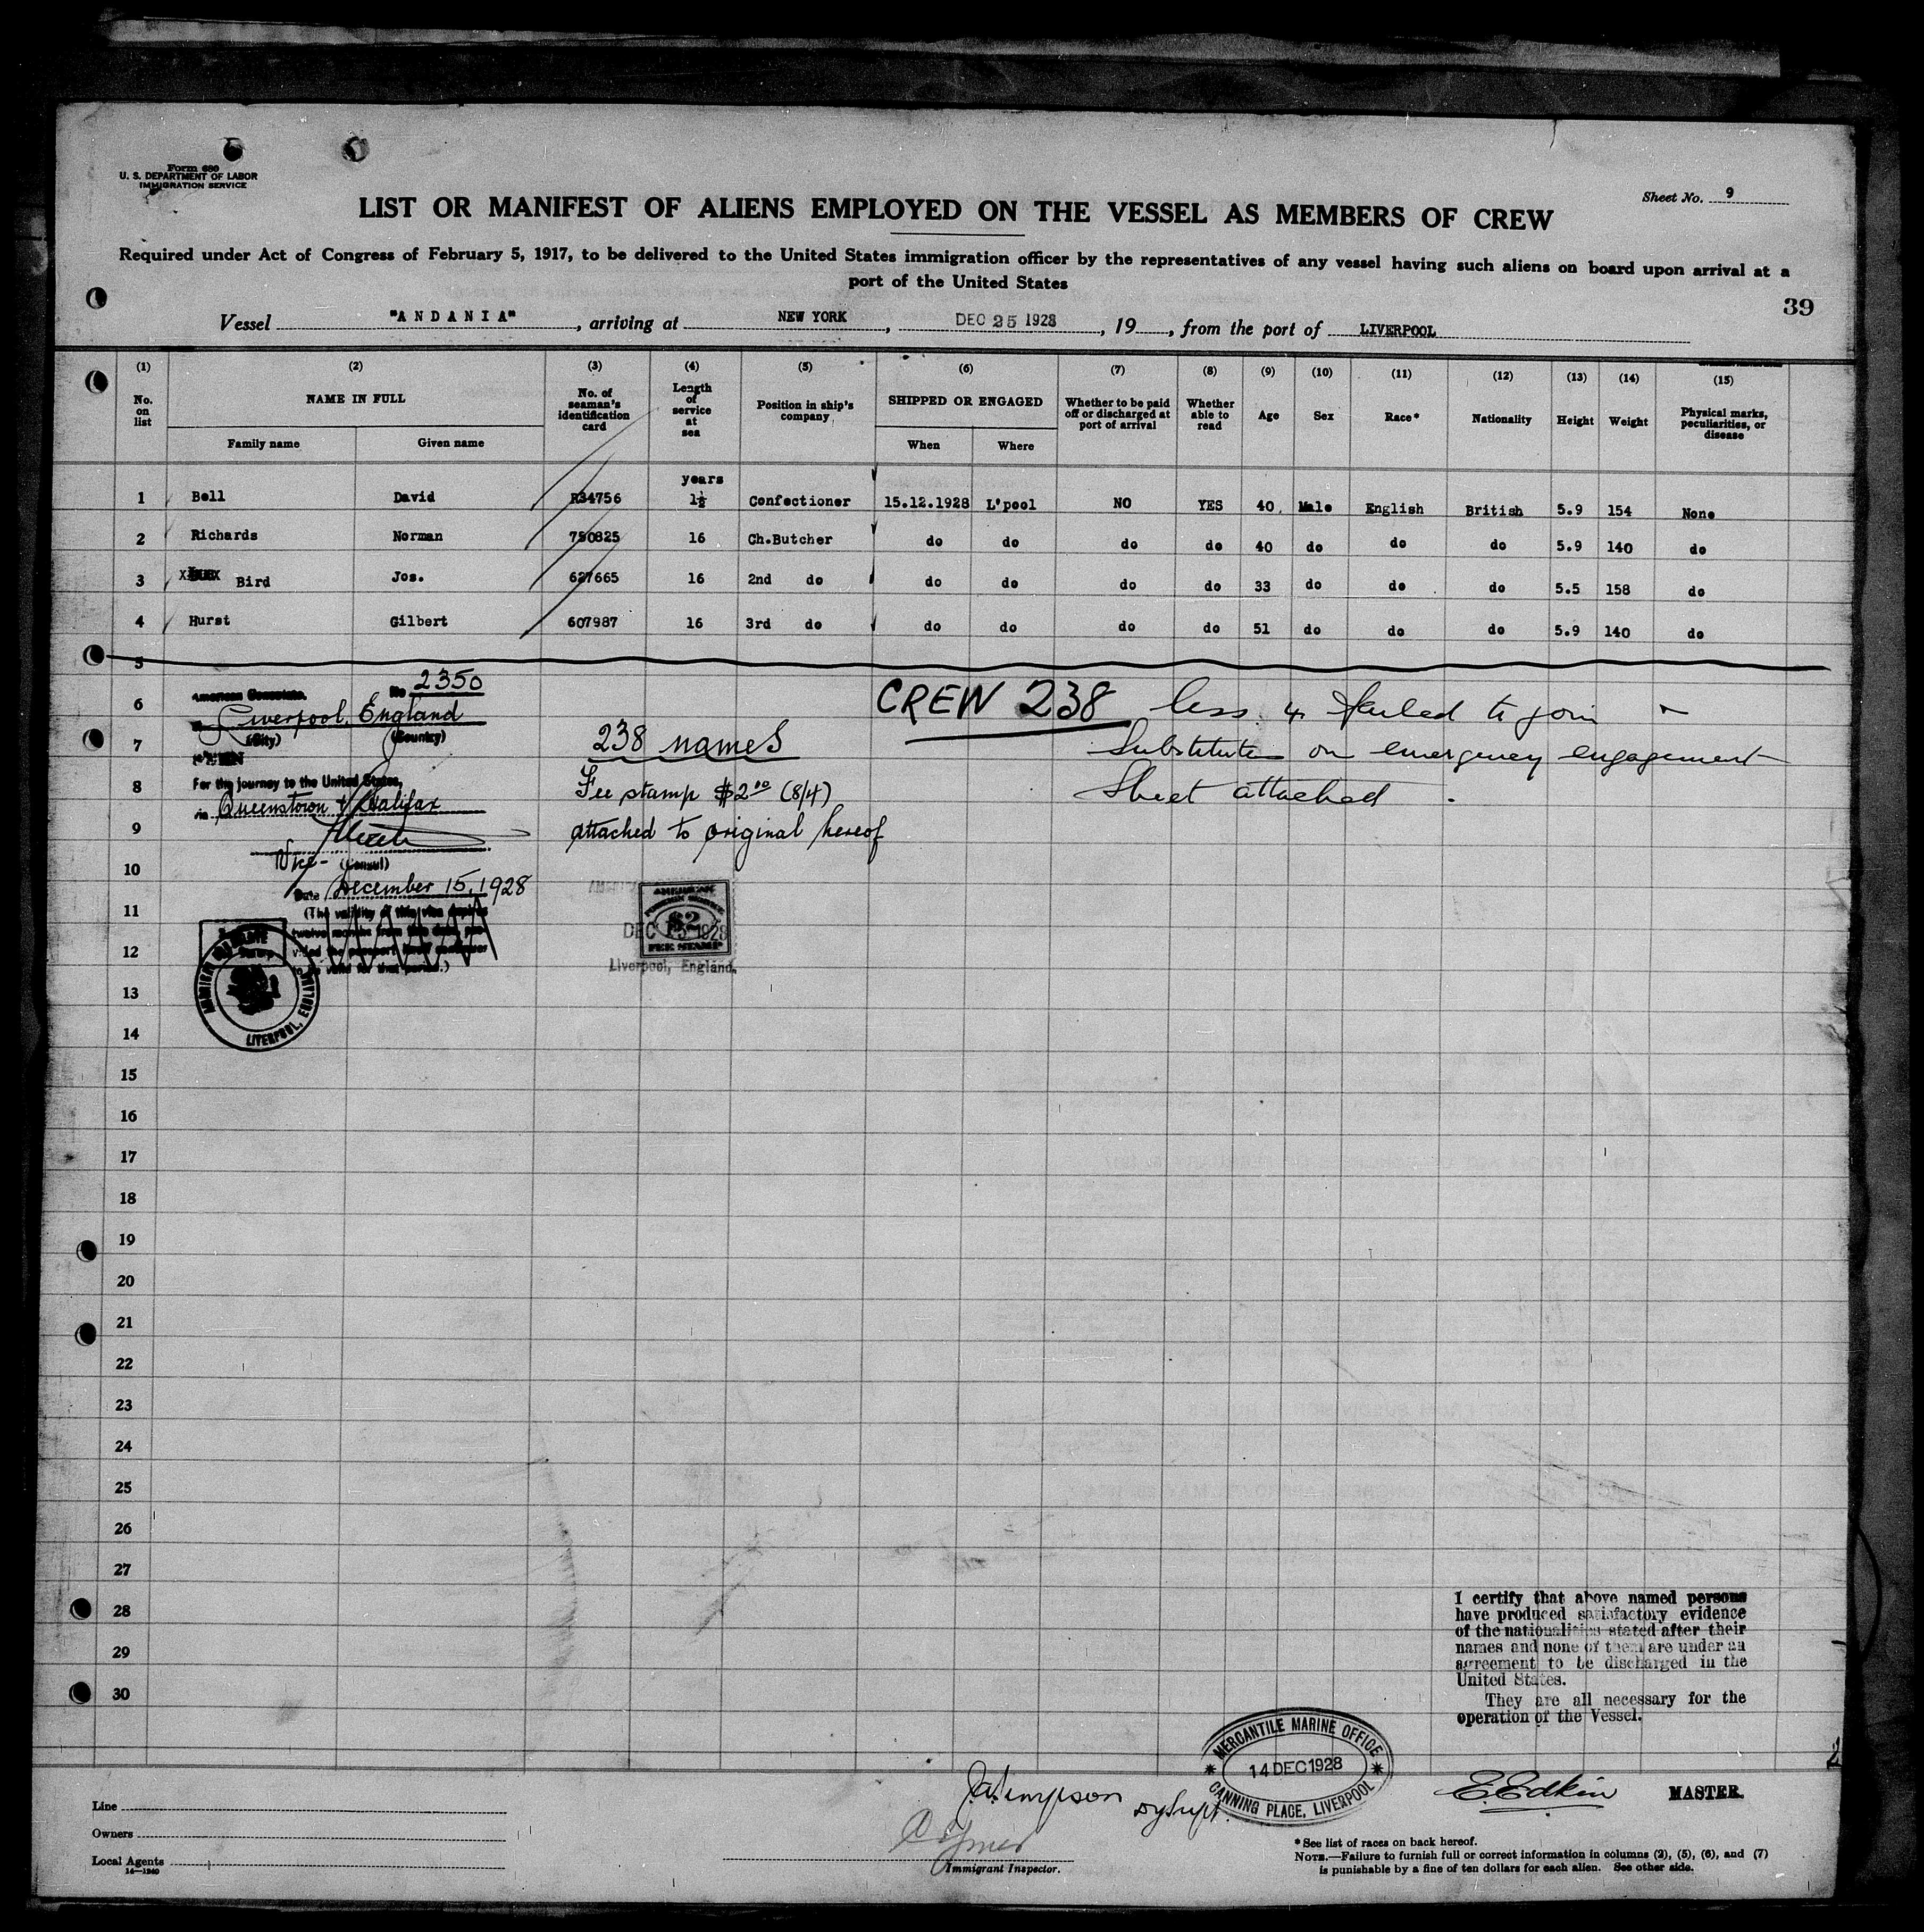 Form 680
U. S. DEPARTMENT OF LABOR
IMMIGRATION SERVICE
Sheet No. 9
LIST OR MANIFEST OF ALIENS EMPLOYED ON THE VESSEL AS MEMBERS OF CREW
Required under Act of Congress of February 5, 1917, to be delivered to the United States immigration officer by the representatives of any vessel having such aliens on board upon arrival at a
port of the United States
39
Vessel "ANDANIA", arriving at NEW YORK, DEC 25 1928, 19, from the port of LIVERPOOL
(1) (2) (3) (4) (5) (6) (7) (8) (9) (10) (11) (12) (13) (14) (15)
No. on list NAME IN FULL No. of seaman's identification card Length of service at sea Position in ship's company SHIPPED OR ENGAGED Whether to be paid off or discharged at port of arrival Whether able to read Age Sex Race* Nationality Height Weight Physical marks, peculiarities, or disease
Family name Given name When Where
years
1 Bell David R34756 1½ Confectioner 15.12.1928 L'pool NO YES 40 Male English British 5.9 154 None
2 Richards Norman 750825 16 Ch.Butcher do do do do 40 do do do 5.9 140 do
3 Bird Jos. 627665 16 2nd do do do do do 33 do do do 5.5 158 do
4 Hurst Gilbert 607987 16 3rd do do do do do 51 do do do 5.9 140 do
5
6
American Consulate. No 2350
Liverpool, England
(City) (Country)
CREW 238 less 4 failed to join
7
238 names
Substitutes on emergency engagement
SEEN
8
For the journey to the United States,
Fee stamp $2.00 (8/4)
Sheet attached.
via Queenstown & Halifax
9
attached to original hereof
Vice- (Consul)
10
Date December 15, 1928
11
(The validity of this visa expires
twelve months from this date
12
to be valid for that period.)
AMERICAN
FOREIGN SERVICE
$2
FEE STAMP
DEC 15 1928
Liverpool, England.
13
LIVERPOOL, ENGLAND
14
15
16
17
18
19
20
21
22
23
24
25
26
27
28
29
30
I certify that above named persons
have produced satisfactory evidence
of the nationalities stated after their
names and none of them are under an
agreement to be discharged in the
United States.
They are all necessary for the
operation of the Vessel.
MERCANTILE MARINE OFFICE
14 DEC 1928
CANNING PLACE, LIVERPOOL
Line
Owners
Local Agents
14—1240
Dy Supt.
E. Edkin MASTER.
Immigrant Inspector.
* See list of races on back hereof.
NOTE.—Failure to furnish full or correct information in columns (2), (5), (6), and (7)
is punishable by a fine of ten dollars for each alien. See other side.